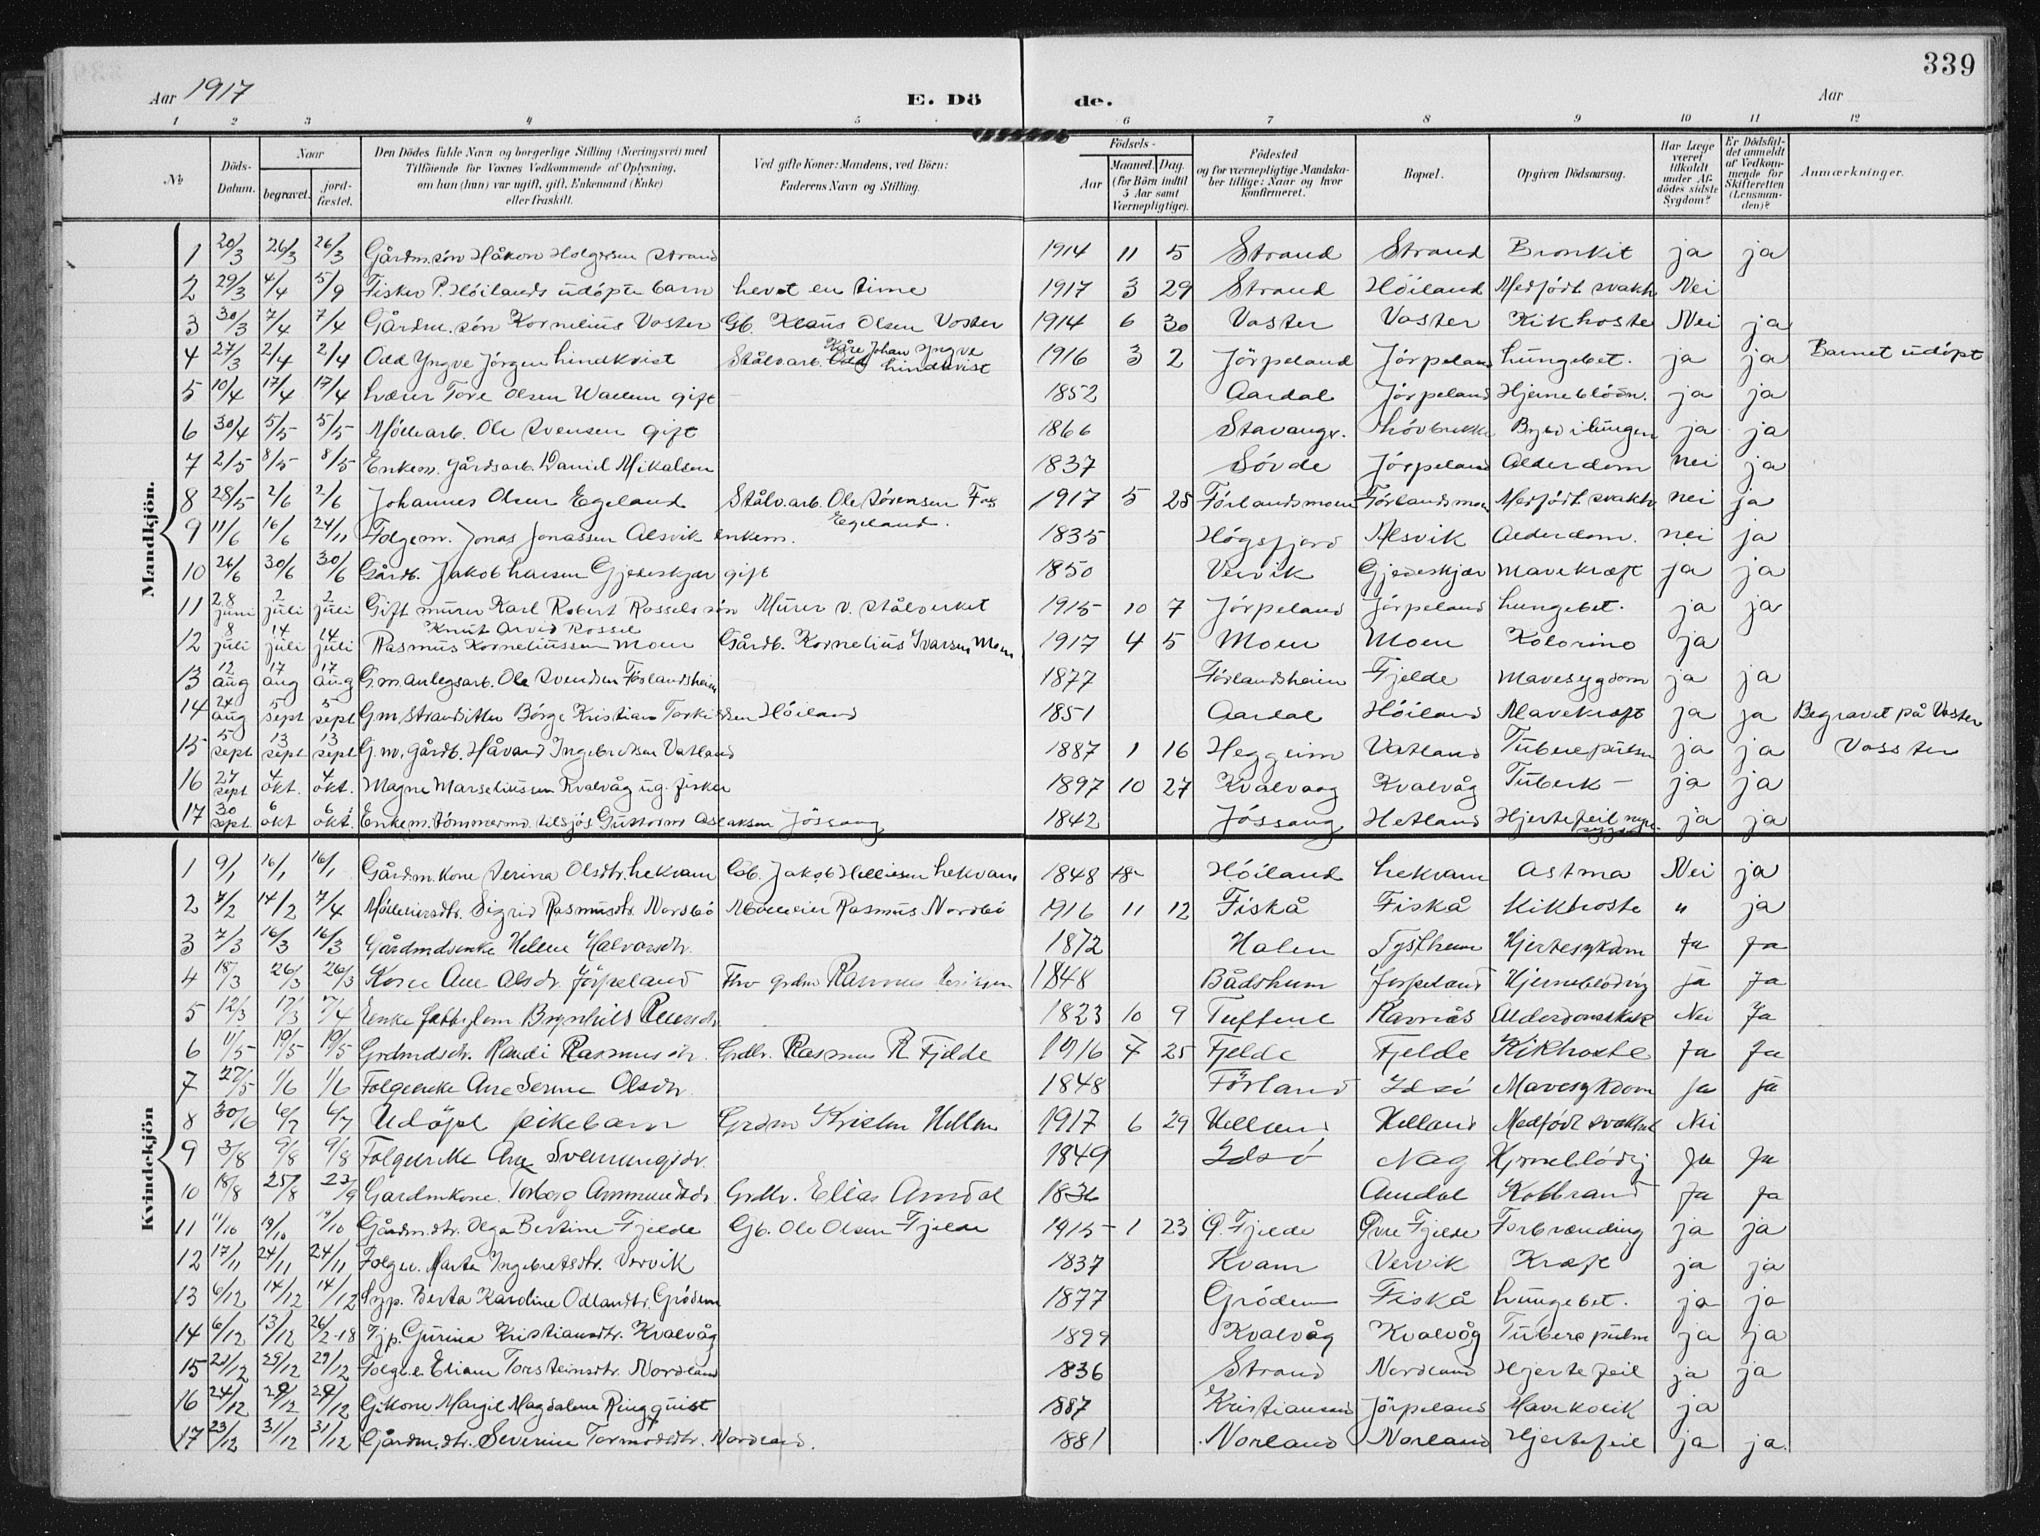 339
Aar 1917 E. Dö de. Aar
1 2 3 4 5 6 7 8 9 10 11 12
№
Döds-Datum.
Naar
begravet.
jord-fæstet.
Den Dödes fulde Navn og borgerlige Stilling (Næringsvei) med
Tilföiende for Voxnes Vedkommende af Oplysning,
om han (hun) var ugift, gift, Enkemand (Enke)
eller fraskilt.
Ved gifte Koner: Mandens, ved Börn:
Faderens Navn og Stilling.
Födsels-
Aar
Maaned. Dag.
(for Börn indtil
5 Aar samt
Værnepligtige).
Födested
og for værnepligtige Mandska-
ber tillige: Naar og hvor
konfirmeret.
Bopæl.
Opgiven Dödsaarsag.
Har Læge
været
tilkaldt
under Af-
dödes sidste
Sygdom?
Er Dödsfal-
det anmeldt
af Vedkom-
mende for
Skifteretten
(Lensman-
den)?
Anmærkninger.
Mandkjön.
1 20/3 26/3 26/3 Gårdm.sön Håkon Holgersen Strand 1914 11 5 Strand Strand Bronkit ja ja
2 29/3 4/4 5/9 Fisker P. Höilands udöpte barn levet en time 1917 3 29 Strand Höiland Medfödt svakh Nei
3 30/3 7/4 7/4 Gårdm. sön Kornelius Voster Gb. Klaus Olsen Voster 1914 6 30 Voster Voster Kikhoste Nei ja
4 27/3 2/4 2/4 Odd Yngve Jörgen Lindkvist Stålvarb. Kåre Johan Yngve Lindkvist 1916 3 2 Jörpeland Jörpeland Lungebet. ja ja Barnet udöpt
5 10/4 17/4 17/4 Lærer Tore Olsen Wallem gift 1852 Aardal Jörpeland Hjerneblödn. ja ja
6 30/4 5/5 5/5 Möllearb. Ole Svensen gift 1866 Stavangr. Lövbrekke Byld i lungen ja ja
7 2/5 8/5 8/5 Enkem. gårdsarb. Daniel Mikalsen 1837 Sövde Jörpeland Alderdom nei ja
8 28/5 2/6 2/6 Johannes Olsen Egeland Stålv.arb. Ole Sörensen Egeland. 1917 5 25 Förlandsmoen Förlandsmoen Medfödt svakh nei ja
9 11/6 16/6 24/11 Folgem. Jonas Jonassen Alsvik enkem. 1835 Högsfjord Alsvik Alderdom. nei ja
10 26/6 30/6 30/6 Gårdb. Jakob Larsen Gjedeskjær gift 1850 Vervik Gjedeskjær Mavekræft ja ja
11 28 juni 2 juli 2 juli Gift murer Karl Robert Rossels sön Murer v. Stålverket 1915 10 7 Jörpeland Jörpeland Lungebet. ja ja
Knut Arvid Rossel
12 8 juli 14 juli 14 juli Rasmus Korneliussen Moen Gårdb. Kornelius Ivarsen Moen 1917 4 5 Moen Moen Kolorino ja
13 12 aug 17 aug 17 aug G.m. anlegsarb. Ole Svendsen Förlandsheim 1877 Förlandsheim Fjelde Mavesygdom ja ja
14 24 aug 5 sept 5 sept G.m. Strandsitter Börge Kristian Torkildsen Höiland 1851 Aardal Höiland Mavekræft ja ja Begravet på Voster
15 5 sept 13 sept 13 sept G.m. gårdb. Håvard Ingebretsen Vatland 1887 1 16 Heggeim Vatland ja ja Voss ter
16 27 sept 4 okt. 4 okt. Magne Marseliussen Kvalvåg ug. fisker 1897 10 27 Kvalvaag Kvalvåg Tuberk - ja ja
17 30 sept 6 okt 6 okt. Enkem. tömmermd. tilsjös Guttorm Aslaksen Jössang 1842 Jössang Hetland Hjertefeil ja ja
Kvindekjön
1 9/1 16/1 16/1 Gårdm.kone Serina Olsdtr. Lekvam Gb. Jakob Helliesen Lekvam 1848 Höiland Lekvam Astma Nei ja
2 7/2 14/2 7/4 Sigrid Rasmusdtr. Nordbö Rasmus Nordbö 1916 11 12 Fiskå Fiskå Kikhoste " ja
3 7/3 16/3 16/3 Gårdmdsenke Hellene Halvorsdtr. 1872 Halen Hjertesykdom Ja Ja
4 18/3 26/3 26/3 Kone Ane Olsdr. Jörpeland Rasmus 1848 Bådshum Jörpeland Hjerneblödng Ja Ja
5 12/3 17/3 7/4 Enke Brynhild 1823 10 9 Tuftene Ravnås Nei Ja
6 11/5 19/5 19/5 Grdmdsdtr. Randi Rasmusdtr. Grdbr. Rasmus R. Fjelde 1916 7 25 Fjelde Fjelde Kikhoste Ja Ja
7 27/5 1/6 1/6 Folgeenke Ane Serine Olsdtr. 1848 Förland Idsö Mavesykdom Ja Ja
8 30/6 6/7 6/7 Udöpt pikebarn Grdm Kristen Hellen 1917 6 29 Helland Helland Medfödt svakhet Nei
9 3/8 9/8 9/8 Folgeenke Ane Sveinungsdr. 1849 Idsö Nag Hjerneblödng Ja Ja
10 18/8 25/8 23/9 Gardmkone. Torborg Ammundsdtr. Grdbr. Elias Amdal 1836 Amdal Koldbrand Ja Ja
11 11/10 19/10 19/10 Gårdm.dtr. Olga Bertine Fjelde Gb. Ole Olsen Fjelde 1915 1 23 Ö. Fjelde Övre Fjelde Forbrænding ja ja
12 17/11 24/11 24/11 Folgee. Marta Ingebretsdtr. Vervik 1837 Kvam Vervik Kræft ja ja
13 6/12 14/12 14/12 Berta Karoline Odlandtr. Grödem 1877 Grödem Fiskå Lungebet. ja ja
14 6/12 13/12 26/2-18 Tjp. Gurina Kristiansdtr. Kvalvåg 1899 Kvalvåg Kvalvåg ja ja
15 23/12 29/12 29/12 Eliam Torsteinsdtr. Nordland 1836 Strand Nordland Hjertefeil ja ja
16 24/12 29/12 29/12 Gjkone Margit Magdalene Ringquist 1887 Kristiansand Jörpeland Mavekolik ja
17 23/12 31/12 31/12 Gårdm.dtr. Severine Tormodsdtr. Nordland. 1881 Norland Norland Hjertefeil ja ja.